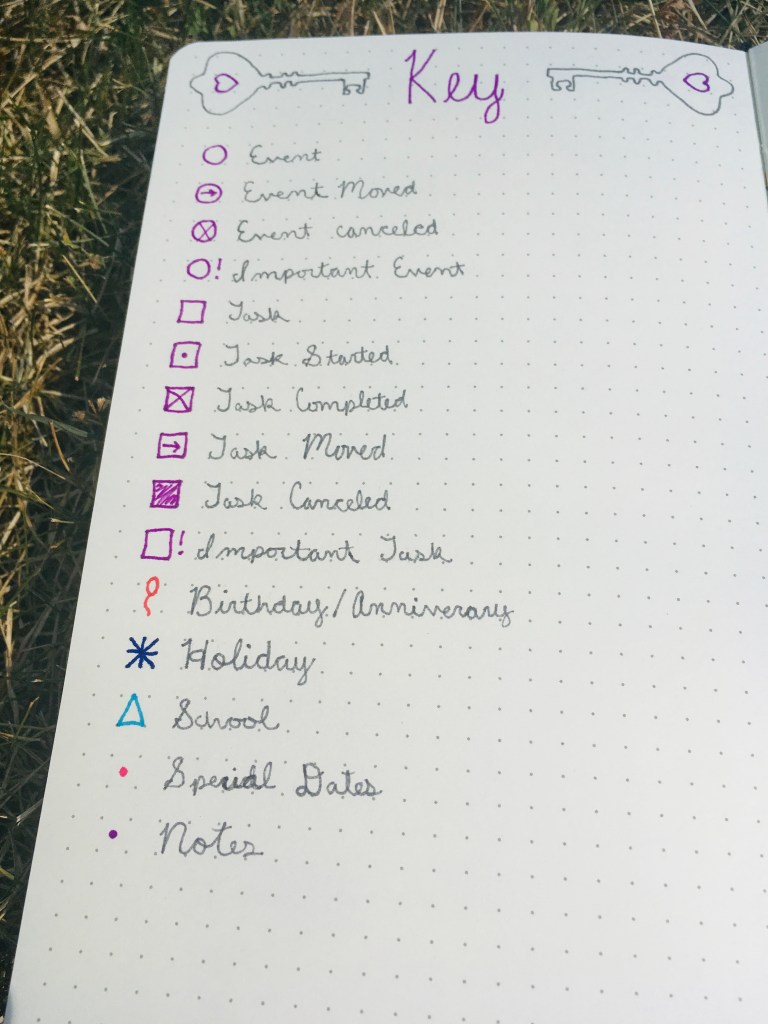 Key
Event
Event Moved
Event canceled
! Important Event
Task
Task Started
Task Completed
Task Moved
Task Canceled
! Important Task
Birthday/Anniverary
Holiday
School
Special Dates
Notes